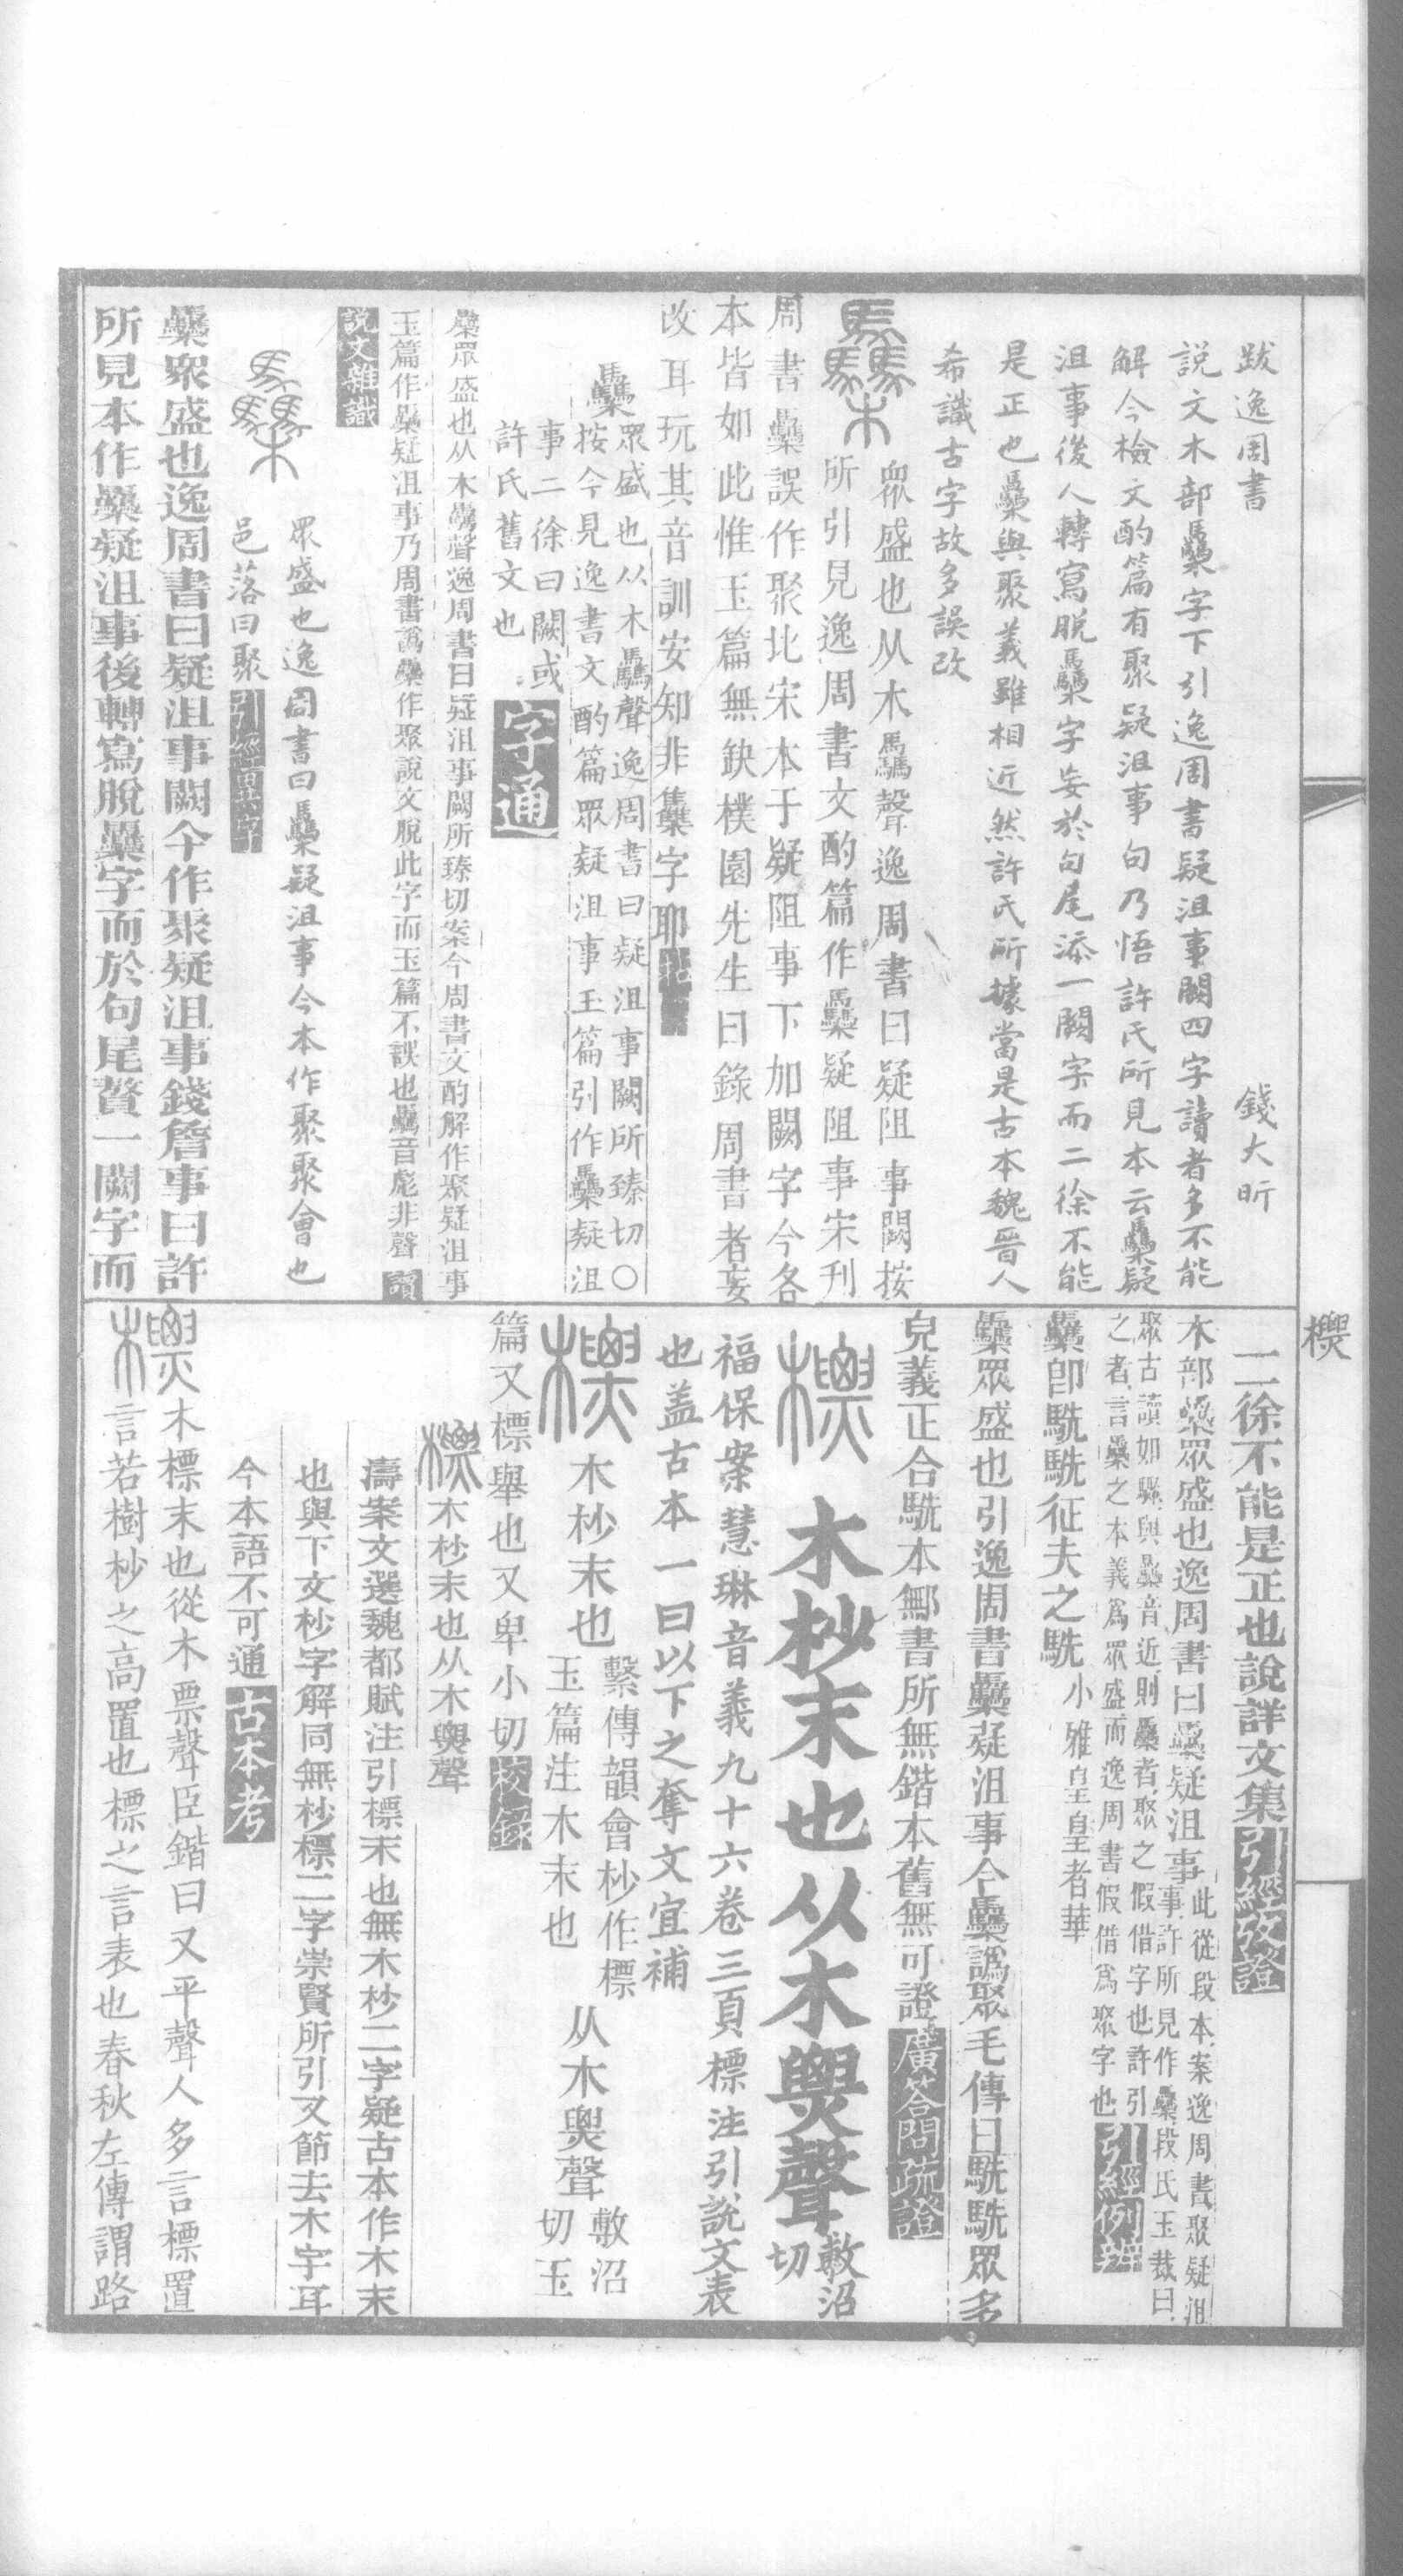 跋逸周書　錢大昕
說文木部驫木字下引逸周書疑沮事闕四字讀者多不能
解今檢文酌篇有聚疑沮事句乃悟許氏所見本云𣡗疑
沮事後人轉寫脫𣡗字妄於句尾添一闕字而二徐不能
是正也𣡗與聚義雖相近然許氏所據當是古本魏晉人
希識古字故多誤改
𣡗　眾盛也从木驫聲逸周書曰疑阻事闕按
所引見逸周書文酌篇作𣡗疑阻事宋刊
周書𣡗誤作聚北宋本于疑阻事下加闕字今各
本皆如此惟玉篇無缺樸園先生曰錄周書者妄
改耳玩其音訓安知非集字耶
𣡗　眾盛也从木驫聲逸周書曰疑沮事闕所臻切〇
按今見逸書文酌篇眾疑沮事玉篇引作𣡗疑沮
事二徐曰闕或
許氏舊文也　字通
𣡗眾盛也从木驫聲逸周書曰疑沮事闕所臻切案今周書文酌解作聚疑沮事
玉篇作𣡗疑沮事乃周書譌𣡗作聚說文脫此字而玉篇不誤也驫音彪非聲　讀
說文雜識
𣡗　眾盛也逸周書曰𣡗疑沮事今本作聚聚會也
邑落曰聚　引經異字
𣡗眾盛也逸周書曰疑沮事闕今作聚疑沮事錢詹事曰許
所見本作𣡗疑沮事後轉寫脫𣡗字而於句尾贅一闕字而
㯹
二徐不能是正也說詳文集　引經攷證
木部𣡗眾盛也逸周書曰𣡗疑沮事此從段本案逸周書聚疑沮
事許所見作𣡗段氏玉裁曰
聚古讀如驟與𣡗音近則𣡗者聚之假借字也許引
之者言𣡗之本義為眾盛而逸周書假借為聚字也　引經例辨
𣡗卽駪駪征夫之駪　小雅皇皇者華
𣡗眾盛也引逸周書𣡗疑沮事今𣡗譌聚毛傳曰駪駪眾多
皃義正合駪本鄦書所無鍇本舊無可證　廣答問疏證
㯹　木杪末也从木㶾聲敷沼切
福保案慧琳音義九十六卷三頁標注引說文表
也蓋古本一曰以下之奪文宜補
㯹　木杪末也繫傳韻會杪作標
玉篇注木末也　从木㶾聲敷沼
切玉
篇又標舉也又卑小切　校錄
㯹　木杪末也从木㶾聲
濤案文選魏都賦注引標末也無木杪二字疑古本作木末
也與下文杪字解同無杪標二字崇賢所引又節去木字耳
今本語不可通　古本考
㯹　木標末也從木票聲臣鍇曰又平聲人多言標置
言若樹杪之高置也標之言表也春秋左傳謂路